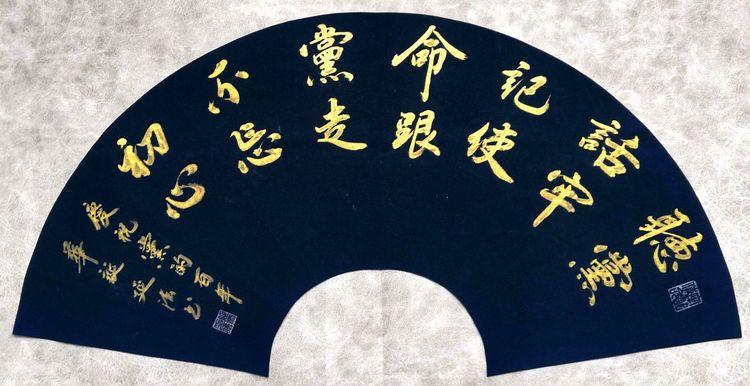 聽黨
話牢
記使
命跟
黨走
不忘
初心
慶祝黨的百年
華誕